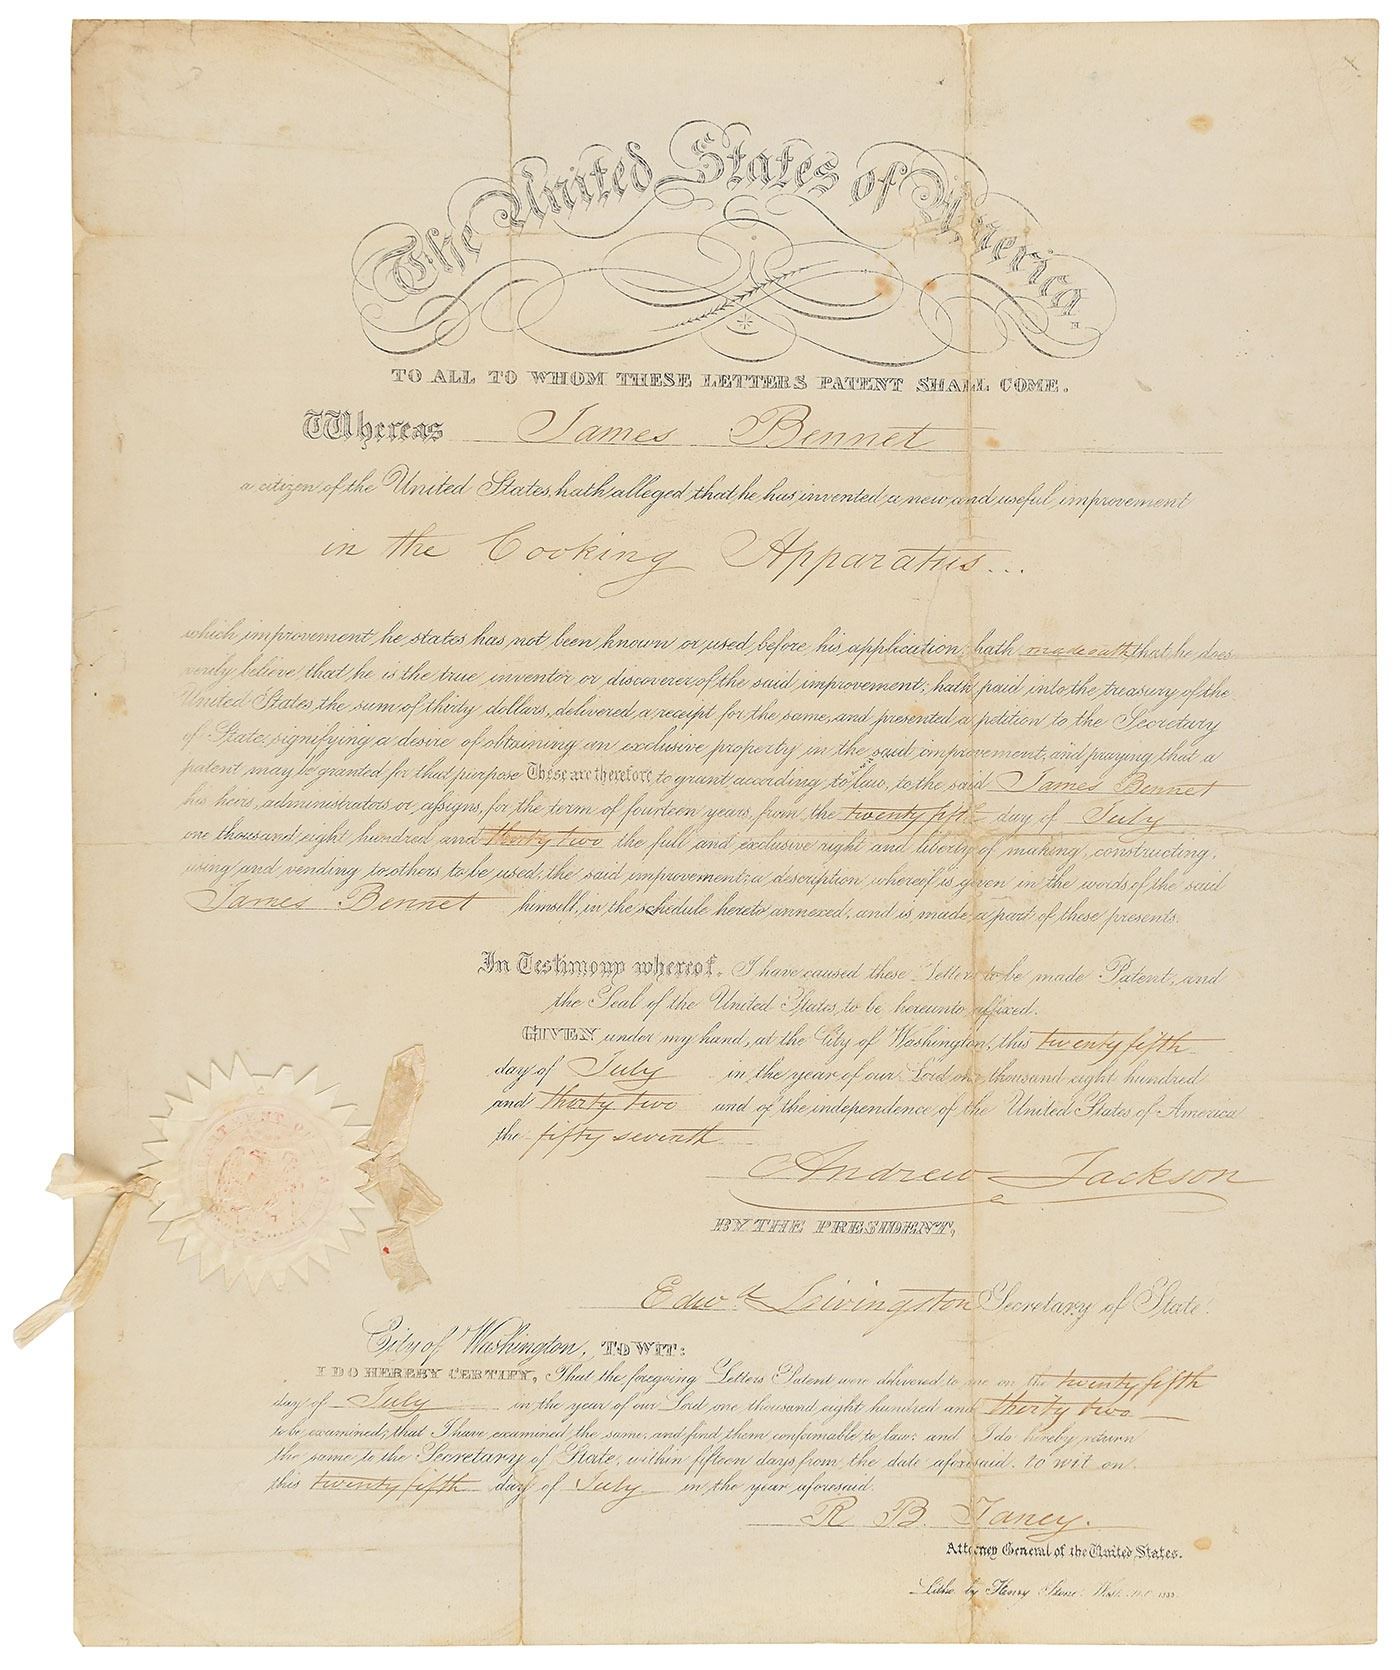 The United States of America
TO ALL TO WHOM THESE LETTERS PATENT SHALL COME.
Whereas James Bennet
a citizen of the United States, hath alleged that he has invented a new and useful improvement
in the Cooking Apparatus...
which improvement, he states has not been known or used before his application; hath made oath that he does
verily believe that he is the true inventor or discoverer of the said improvement; hath paid into the treasury of the
United States, the sum of thirty dollars, delivered a receipt for the same, and presented a petition to the Secretary
of State, signifying a desire of obtaining an exclusive property in the said improvement, and praying that a
patent may be granted for that purpose These are therefore to grant, according to law, to the said James Bennet
his heirs, administrators or assigns, for the term of fourteen years, from the twenty fifth day of July
one thousand eight hundred and thirty two the full and exclusive right and liberty of making, constructing,
using and vending to others to be used, the said improvement; a description whereof is given in the words of the said
James Bennet himself, in the schedule hereto annexed, and is made a part of these presents.
In Testimony whereof, I have caused these Letters to be made Patent, and
the Seal of the United States to be hereunto affixed.
GIVEN under my hand, at the City of Washington, this twenty fifth
day of July in the year of our Lord one thousand eight hundred
and thirty two and of the independence of the United States of America
the fifty seventh
Andrew Jackson
BY THE PRESIDENT,
Edwd Livingston Secretary of State.
City of Washington, TO WIT:
I DO HEREBY CERTIFY, That the foregoing Letters Patent were delivered to me on the twenty fifth
day of July in the year of our Lord one thousand eight hundred and thirty two
to be examined; that I have examined the same, and find them conformable to law; and I do hereby return
the same to the Secretary of State, within fifteen days from the date aforesaid, to wit on
this twenty fifth day of July in the year aforesaid.
R B. Taney.
Attorney General of the United States.
Litho. by Henry Stone